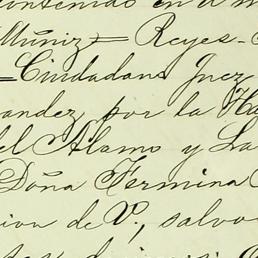 contenido en a
Muñiz = Reyes-
= Ciudadano Juez
andez por la Ha
el Alamo y La
Doña Fermina
ion de V., salvo